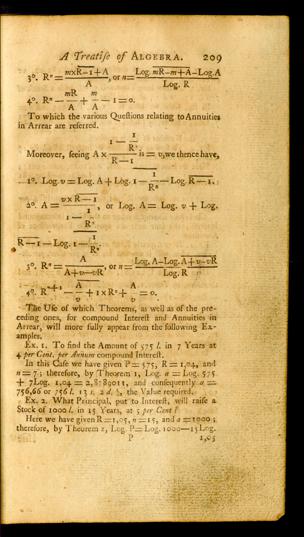 A Treatise of ALGEBRA. 209
3°. Rⁿ = m×R̅−̅1̅+A / A, or n = Log. m̅R̅−̅m̅+̅A̅−Log.A / Log. R
4°. Rⁿ − mR/A + m/A − 1 = 0.
To which the various Questions relating to Annuities
in Arrear are referred.
Moreover, seeing A × (1 − 1/Rⁿ) / (R−1) is = v, we thence have,
1°. Log. v = Log. A + Log. 1 − 1/Rⁿ − Log. R̅−̅1̅.
2°. A = v × R̅−̅1̅ / (1 − 1/Rⁿ), or Log. A = Log. v + Log.
R̅−̅1̅ − Log. 1 − 1/Rⁿ.
3°. Rⁿ = A / (A+v−vR), or n = Log. A−Log. A̅+̅v̅−̅v̅R̅ / Log. R
4°. Rⁿ⁺¹ − A/v + 1 × Rⁿ + A/v = 0.
The Use of which Theorems, as well as of the pre-
ceding ones, for compound Interest and Annuities in
Arrear, will more fully appear from the following Ex-
amples.
Ex. 1. To find the Amount of 575 l. in 7 Years at
4 per Cent. per Annum compound Interest.
In this Case we have given P = 575, R = 1,04, and
n = 7; therefore, by Theorem 1, Log. a = Log. 575
+ 7Log. 1,04 = 2,8789011, and consequently a =
756,66 or 756 l. 13 s. 2 d. ½, the Value required.
Ex. 2. What Principal, put to Interest, will raise a
Stock of 1000 l. in 15 Years, at 5 per Cent?
Here we have given R = 1,05, n = 15, and a = 1000;
therefore, by Theorem 2, Log. P = Log. 1000—15 Log.
P 1,05